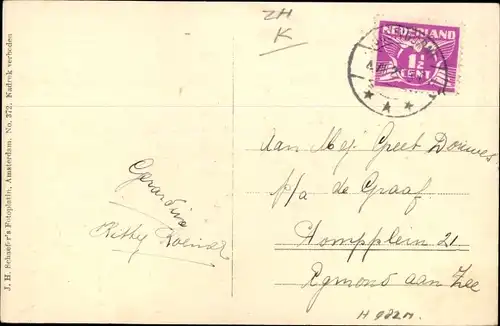 ZH
K
NEDERLAND
1½
CENT
J. H. Schaefer's Fotoplatin, Amsterdam. No. 372. Nadruk verboden
Aan Mej. Greet Douwes
p/a de Graaf
Pompplein 21
Egmond aan Zee
Gerardine
Kitty
H 982M